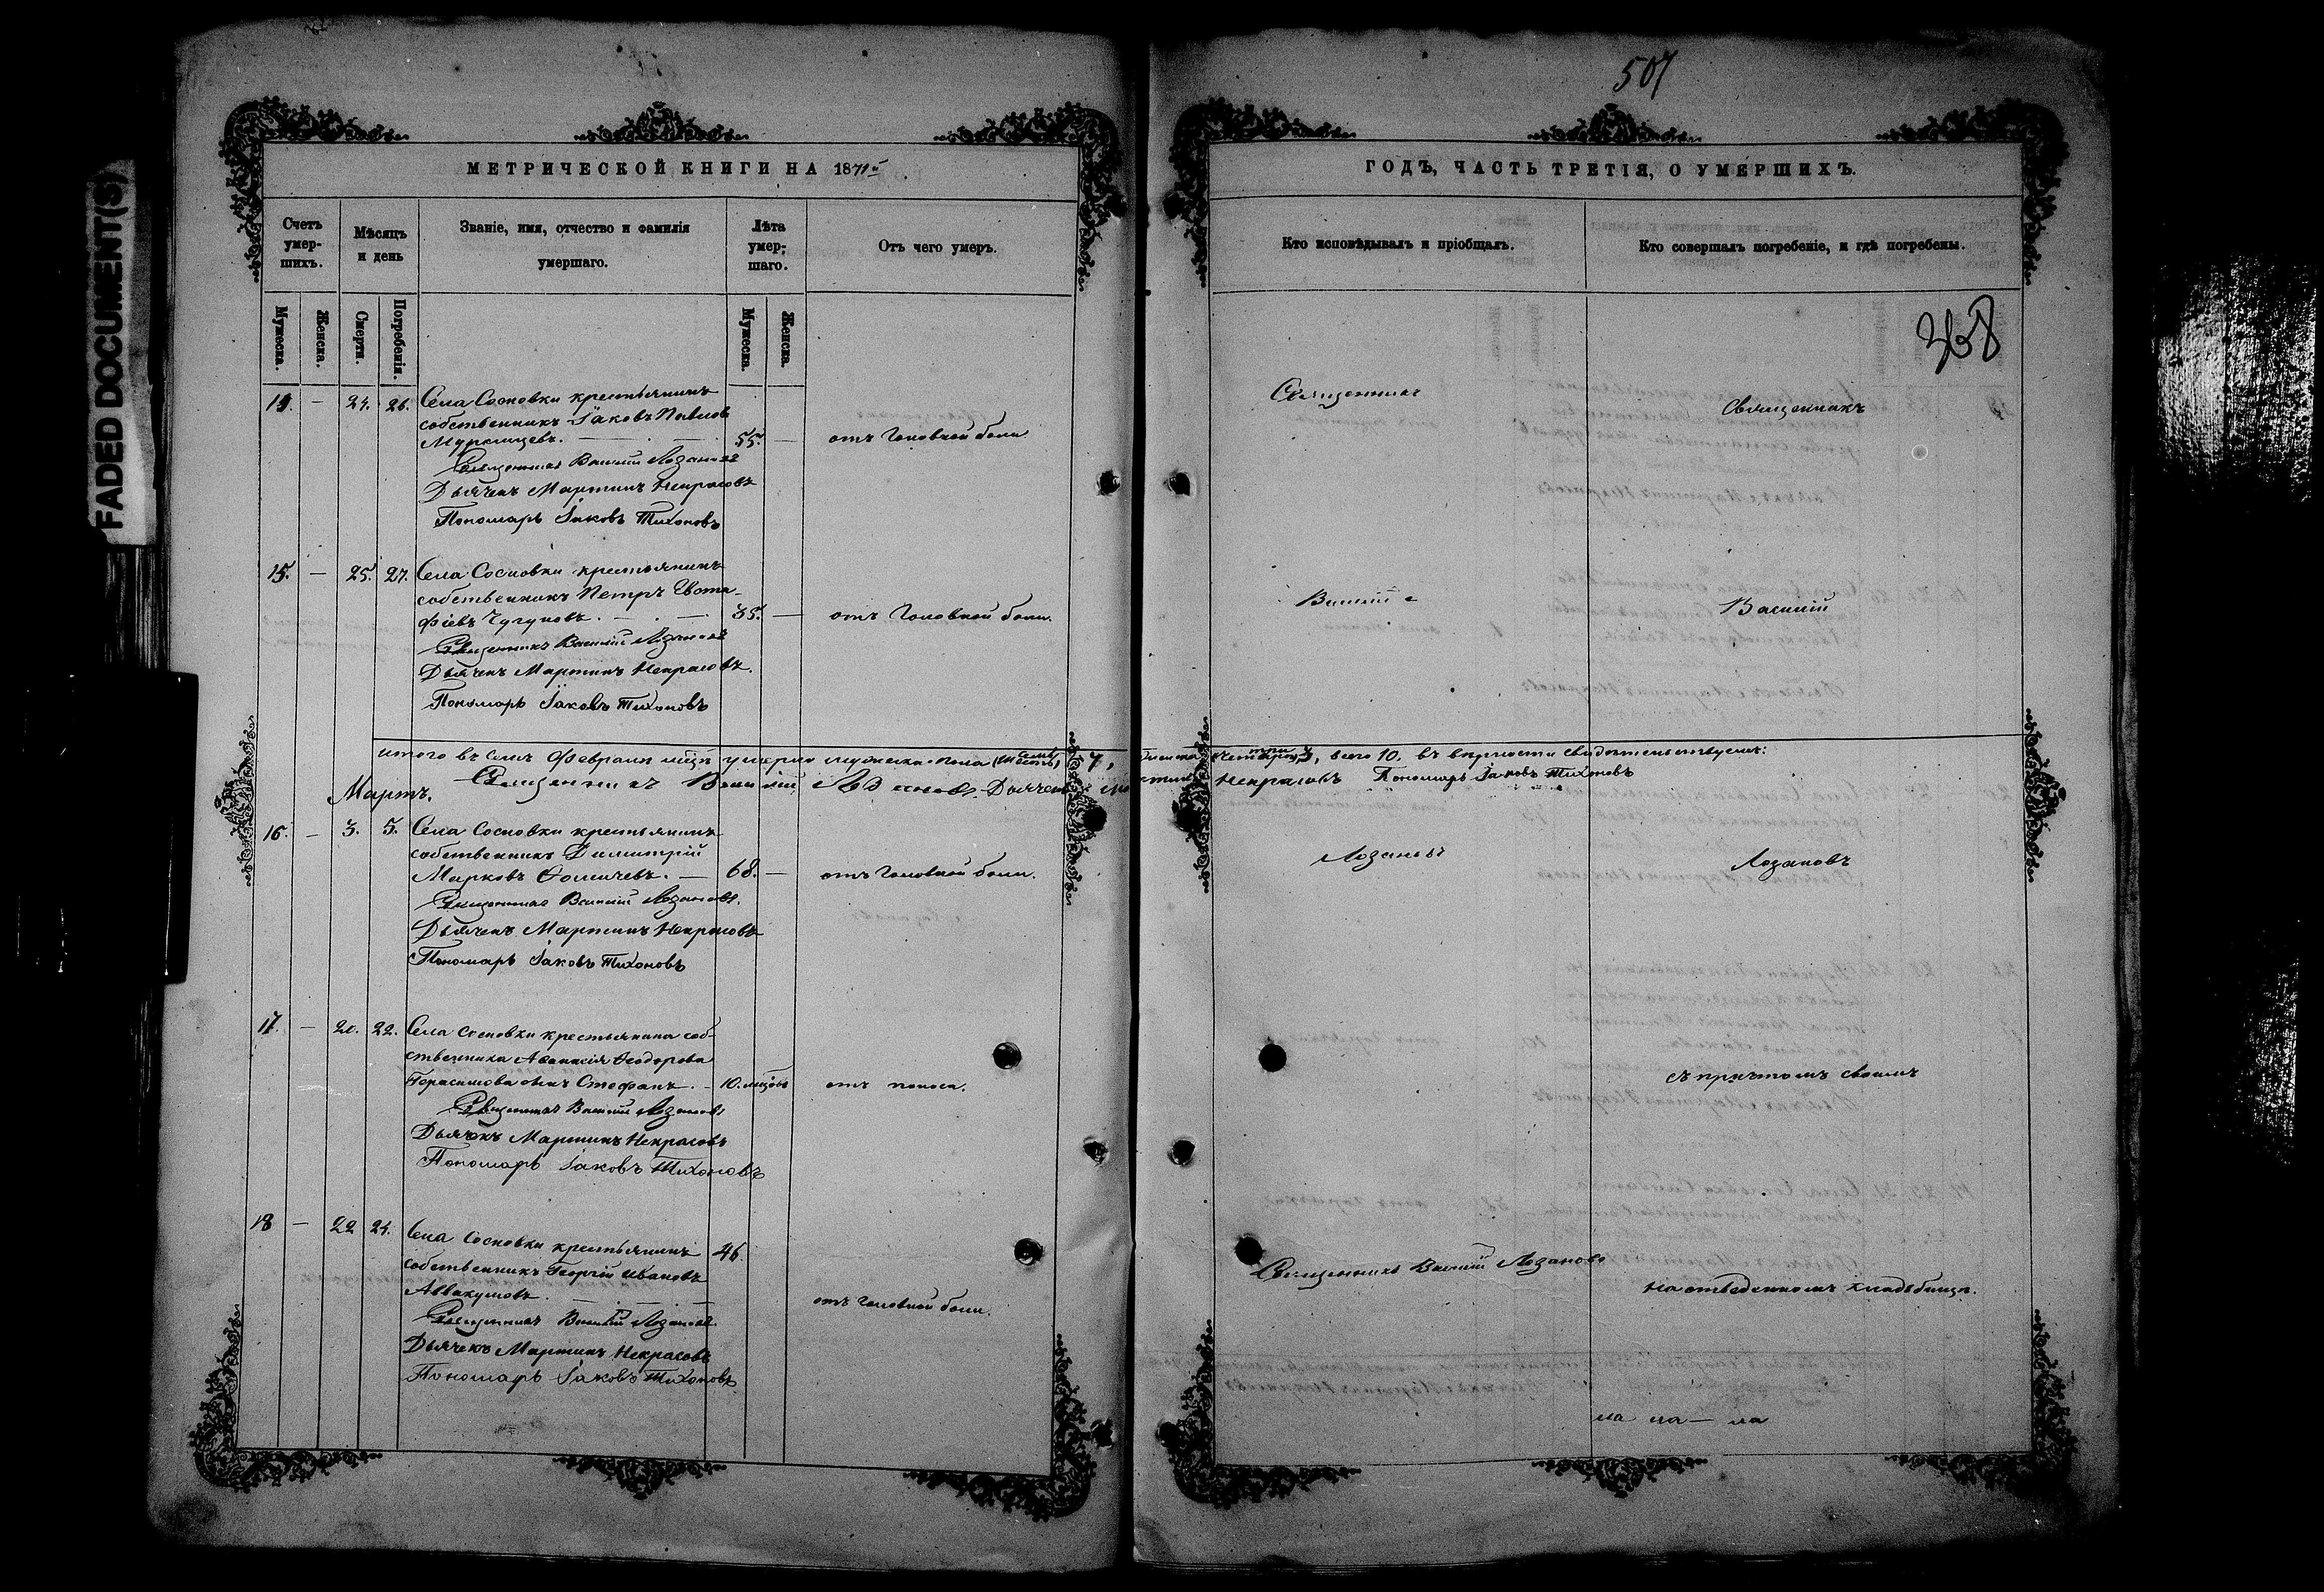 FADED DOCUMENT(S)
МЕТРИЧЕСКОЙ КНИГИ НА 1871й
Счетъ умер- шихъ.
Мѣсяцъ и день
Званіе, имя, отчество и фамилія умершаго.
Лѣта умер- шаго.
Отъ чего умеръ.
Мужеска.
Женска.
Смерти.
Погребенія.
Мужеска.
Женска.
14. — 24. 26. Села Сосновки крестьянинъ
собственникъ Іаковъ Павлов
55. — отъ головной боли
Священникъ Василій Лозановъ
Дьячекъ Мартинъ Некрасовъ
Пономарь Іаковъ Тихоновъ
15. — 25. 27. Села Сосновки крестьянинъ
собственникъ Петръ Евста-
фіевъ Чугуновъ. — 35. — отъ головной боли.
Священникъ Василій Лозановъ
Дьячекъ Мартинъ Некрасовъ.
Пономарь Іаковъ Тихоновъ
итого въ семъ Февралѣ мцѣ умерло мужеска пола (семь) 7,
Священникъ Василій Лозановъ Дьячекъ
Мартъ.
16. — 3. 5. Села Сосновки крестьянинъ
собственникъ Димитрій
Марковъ Ѳомичевъ. — 68. — отъ головной боли.
Священникъ Василій Лозановъ.
Дьячекъ Мартинъ Некрасовъ
Пономарь Іаковъ Тихоновъ
17. — 20. 22. Села Сосновки крестьянина соб-
ственника Аѳанасія Ѳеодорова
Герасимова сынъ Стефанъ. — 10. мцовъ отъ поноса.
Священникъ Василій Лозановъ
Дьячекъ Мартинъ Некрасовъ
Пономарь Іаковъ Тихоновъ
18 — 22 24. Села Сосновки крестьянинъ 46.
собственникъ Георгій Ивановъ
Аввакумовъ. — отъ головной боли.
Священникъ Василій Лозановъ
Дьячекъ Мартинъ Некрасовъ
Пономарь Іаковъ Тихоновъ
507
ГОДЪ, ЧАСТЬ ТРЕТІЯ, О УМЕРШИХЪ.
Кто исповѣдывалъ и пріобщалъ.
Кто совершалъ погребеніе, и гдѣ погребены.
368
Священникъ
Священникъ
Василій
Василій
три 3, всего 10. въ вѣрности свидѣтельствуемъ:
Некрасовъ Пономарь Іаковъ Тихоновъ
Лозановъ
Лозановъ
съ причтомъ своимъ
Священникъ Василій Лозановъ
на отведенномъ кладбищѣ.